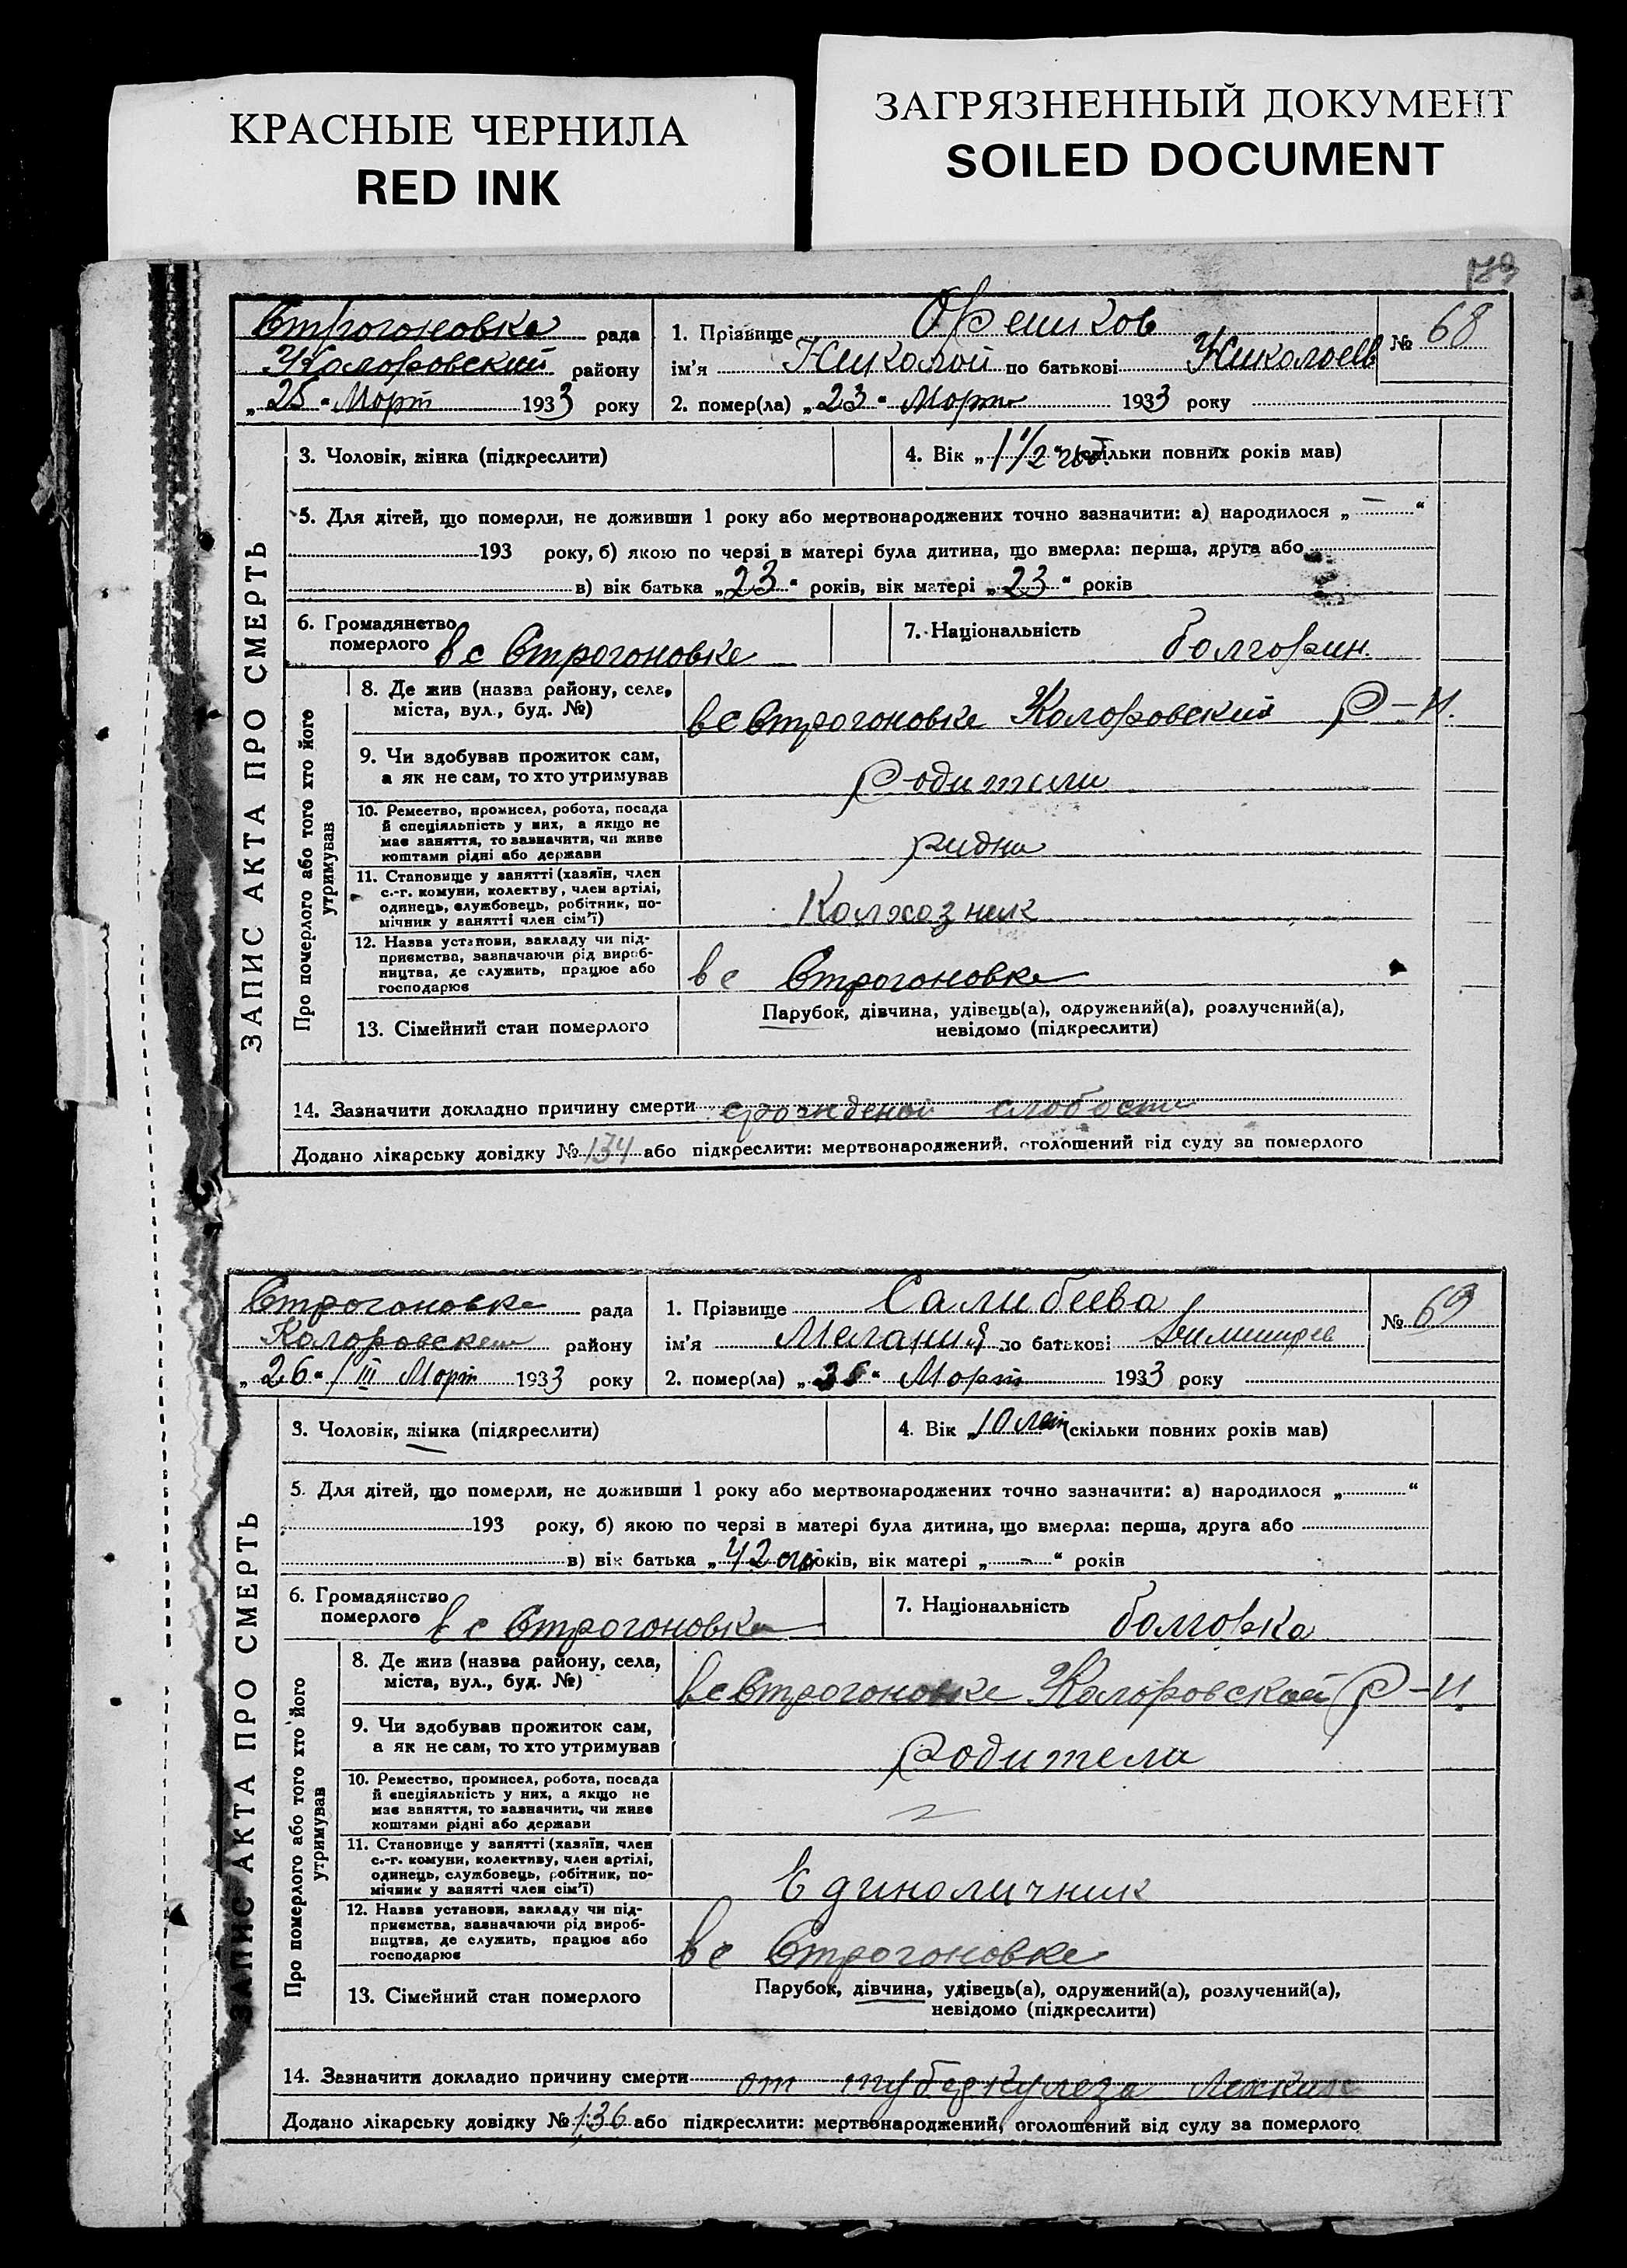 КРАСНЫЕ ЧЕРНИЛА
RED INK
ЗАГРЯЗНЕННЫЙ ДОКУМЕНТ
SOILED DOCUMENT
Строгоновке рада
Коларовский району
„25“ Март 1933 року
1. Прізвище Орешков
ім'я Николай по батькові Николаев
2. помер(ла) „23“ Март 1933 року
№ 68
ЗАПИС АКТА ПРО СМЕРТЬ
3. Чоловік, жінка (підкреслити)
4. Вік „1 1/2 год. (скільки повних років мав)
5. Для дітей, що померли, не доживши 1 року або мертвонароджених точно зазначити: а) народилося „—“
193 року, б) якою по черзі в матері була дитина, що вмерла: перша, друга або
в) вік батька „23“ років, вік матері „23“ років
6. Громадянство померлого в с Строгоновке
7. Національність болгарин.
Про померлого або того хто його утримував
8. Де жив (назва району, села,
міста, вул., буд. №)
в с Строгоновке Коларовский Р-н.
9. Чи здобував прожиток сам,
а як не сам, то хто утримував
родители
10. Ремество, промисел, робота, посада
й спеціяльність у них, а якщо не
має заняття, то зазначити, чи живе
коштами рідні або держави
ридни
11. Становище у занятті (хазяїн, член
с.-г. комуни, колективу, член артілі,
одинець, службовець, робітник, по-
мічник у занятті член сім'ї)
Колхозник
12. Назва установи, закладу чи під-
приємства, зазначаючи рід вироб-
ництва, де служить, працює або
господарює
в с Строгоновке
13. Сімейний стан померлого
Парубок, дівчина, удівець(а), одружений(а), розлучений(а),
невідомо (підкреслити)
14. Зазначити докладно причину смерти слабости
Додано лікарську довідку № 134 або підкреслити: мертвонароджений, оголошений від суду за померлого
Строгоновке рада
Коларовский району
„26“ / III Март 1933 року
1. Прізвище Салибеева
ім'я Мелания по батькові
2. помер(ла) Март 1933 року
№ 69
ЗАПИС АКТА ПРО СМЕРТЬ
3. Чоловік, жінка (підкреслити)
4. Вік „10 лет (скільки повних років мав)
5. Для дітей, що померли, не доживши 1 року або мертвонароджених точно зазначити: а) народилося „ “
193 року, б) якою по черзі в матері була дитина, що вмерла: перша, друга або
в) вік батька „42 років, вік матері „-“ років
6. Громадянство померлого в с Строгоновке
7. Національність болгарка
Про померлого або того хто його утримував
8. Де жив (назва району, села,
міста, вул., буд. №)
в с Строгоновке Коларовский Р-н.
9. Чи здобував прожиток сам,
а як не сам, то хто утримував
родители
10. Ремество, промисел, робота, посада
й спеціяльність у них, а якщо не
має заняття, то зазначити, чи живе
коштами рідні або держави
11. Становище у занятті (хазяїн, член
с.-г. комуни, колективу, член артілі,
одинець, службовець, робітник, по-
мічник у занятті член сім'ї)
Единоличник
12. Назва установи, закладу чи під-
приємства, зазначаючи рід вироб-
ництва, де служить, працює або
господарює
в с Строгоновке
13. Сімейний стан померлого
Парубок, дівчина, удівець(а), одружений(а), розлучений(а),
невідомо (підкреслити)
14. Зазначити докладно причину смерти от туберкулеза легких
Додано лікарську довідку № 136 або підкреслити: мертвонароджений, оголошений від суду за померлого